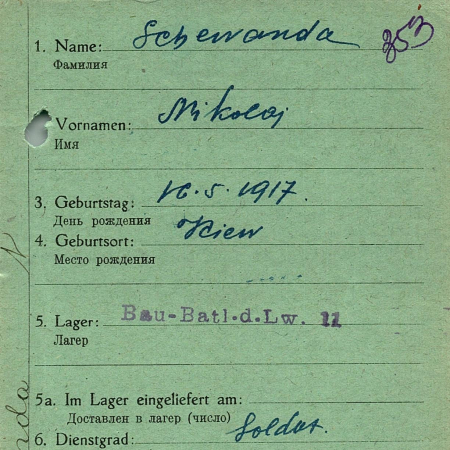 253
1. Name: Schewanda
Фамилия
Vornamen: Nikolaj
Имя
3. Geburtstag: 16.5.1917.
День рождения
4. Geburtsort: Kiew
Место рождения
5. Lager: Bau-Batl.d.Lw. 11
Лагер
5a. Im Lager eingeliefert am:
Доставлен в лагер (число)
6. Dienstgrad: Soldat.